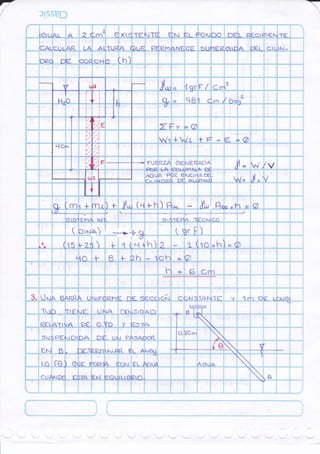 IGUAL A 2 Cm² EXISTENTE EN EL FONDO DEL RECIPIENTE
CALCULAR LA ALTURA QUE PERMANECE SUMERGIDA DEL CILIN-
DRO DE CORCHO (h)
W1
H2O
h
E
4cm
F
W2
γw = 1grF / Cm³
g = 981 cm / seg²
ΣFy = 0
W1 + W2 + F - E = 0
FUERZA GENERADA
POR LA COLUMNA DE
AGUA POR ENCIMA DEL
CUADRO DE ALUMINIO
γ = W / V
W = γ . V
g (m1 + m2) + γw (4+h) A - γw A . h = 0
SISTEMA INT.
SISTEMA TECNICO
( DINA ) → ÷ g ( grF )
∴ (15 + 25) + 1 (4+h) 2 - 1 (10.h) = 0
40 + 8 + 2h - 10h = 0
h = 6 cm
3. UNA BARRA UNIFORME DE SECCIÓN CONSTANTE Y 1m DE LONGI
TUD, TIENE UNA DENSIDAD
RELATIVA DE 0.75 Y ESTA
SUSPENDIDA DE UN PASADOR
EN B. DETERMINAR EL ANGU
LO (θ) QUE FORMA CON EL AGUA
CUANDO ESTA EN EQUILIBRIO.
B
0.20m
θ
AGUA
A